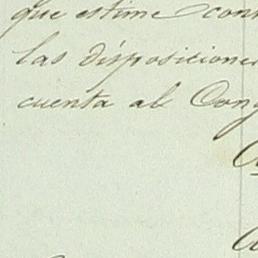 que estime con
las disposicione
cuenta al Cong